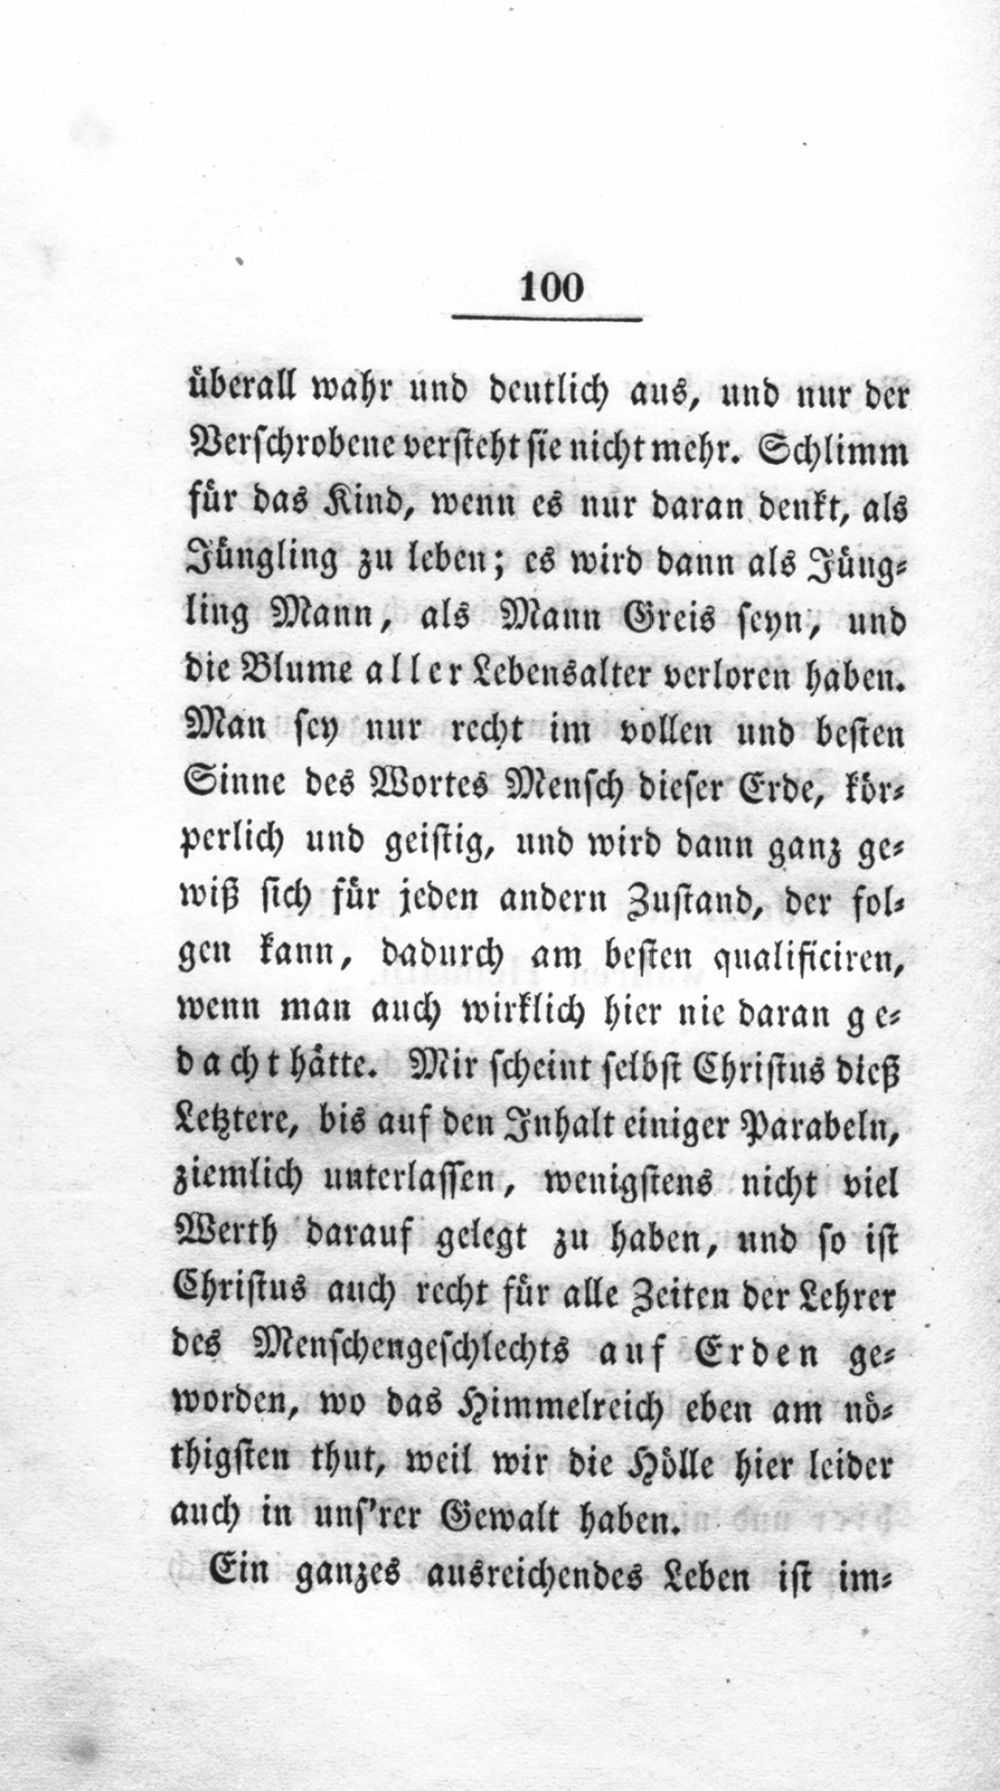 100
überall wahr und deutlich aus, und nur der
Verschrobene versteht sie nicht mehr. Schlimm
für das Kind, wenn es nur daran denkt, als
Jüngling zu leben; es wird dann als Jüng-
ling Mann, als Mann Greis seyn, und
die Blume aller Lebensalter verloren haben.
Man sey nur recht im vollen und besten
Sinne des Wortes Mensch dieser Erde, kör-
perlich und geistig, und wird dann ganz ge-
wiß sich für jeden andern Zustand, der fol-
gen kann, dadurch am besten qualificiren,
wenn man auch wirklich hier nie daran ge-
dacht hätte. Mir scheint selbst Christus dieß
Letztere, bis auf den Inhalt einiger Parabeln,
ziemlich unterlassen, wenigstens nicht viel
Werth darauf gelegt zu haben, und so ist
Christus auch recht für alle Zeiten der Lehrer
des Menschengeschlechts auf Erden ge-
worden, wo das Himmelreich eben am nö-
thigsten thut, weil wir die Hölle hier leider
auch in uns'rer Gewalt haben.
Ein ganzes ausreichendes Leben ist im-